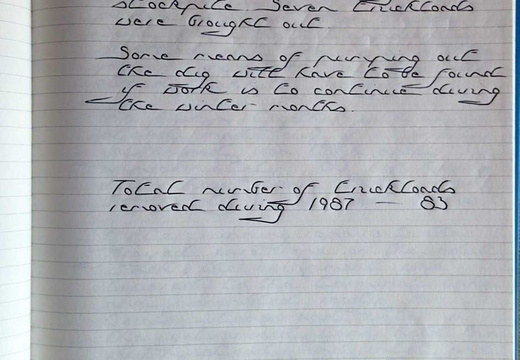 stockpile seven truckloads
were brought out.
Some means of pumping out
the dig will have to be found
if work is to continue during
the winter months.
Total number of truckloads
removed during 1987 — 83